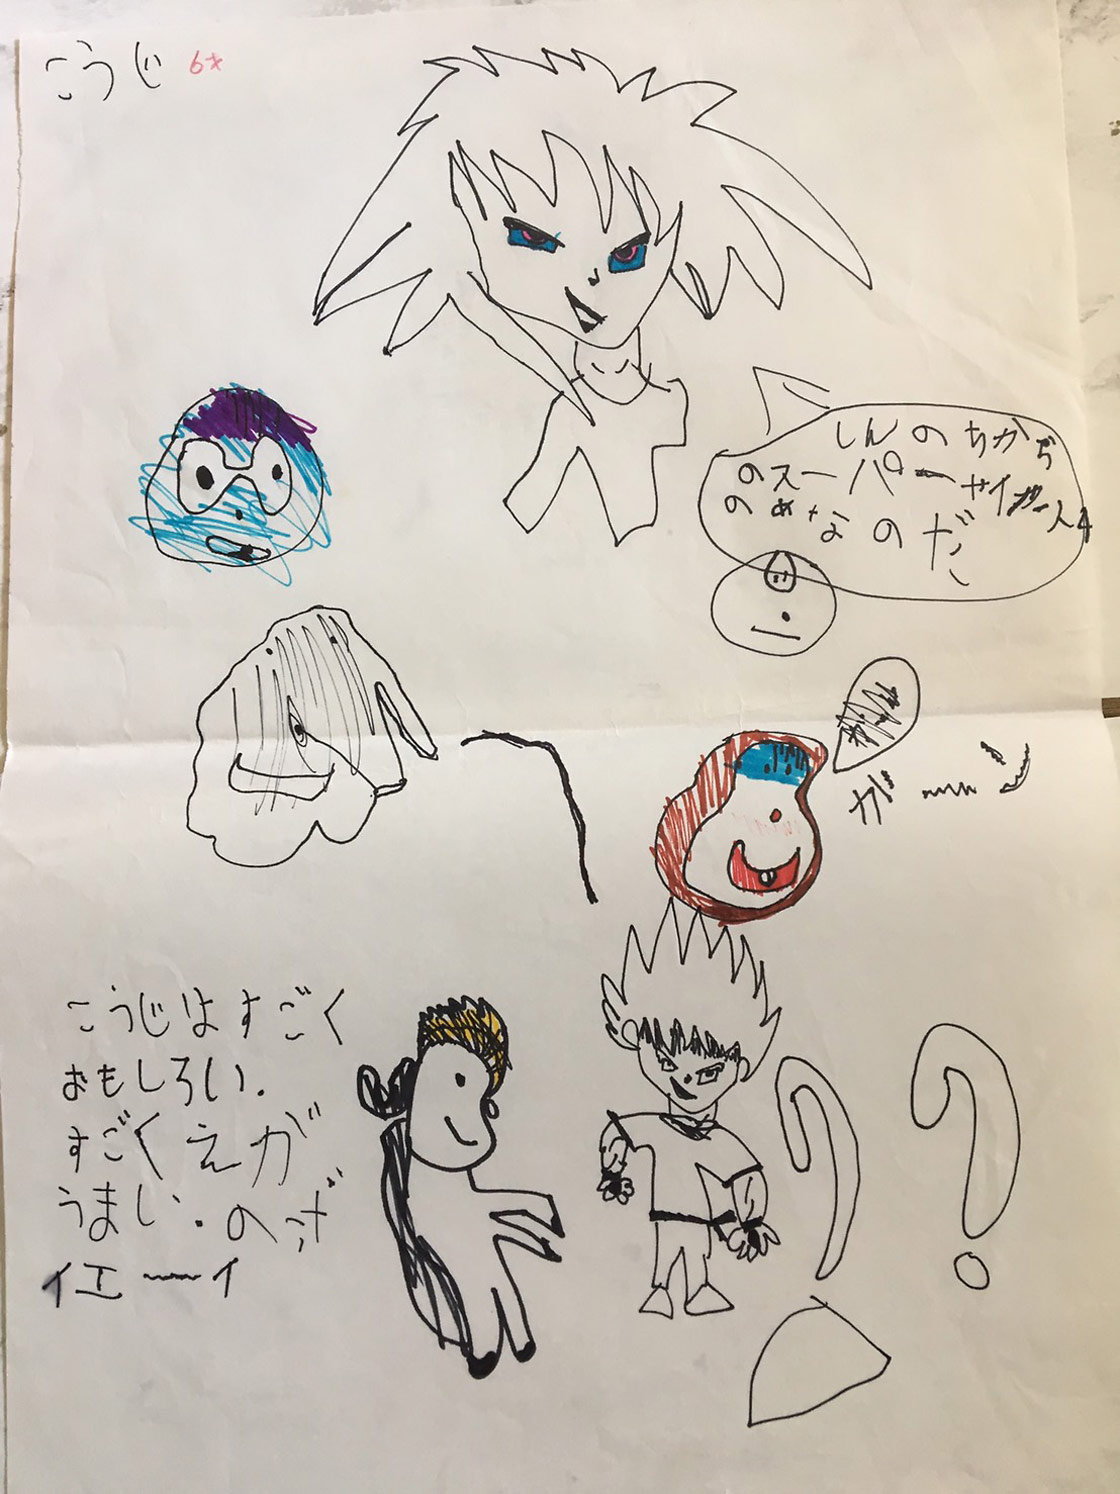 こうじ 6才
しんのちから
のスーパーサイヤ人4
のあな
のだ
がーーん
こうじはすごく
おもしろい.
すごくえが
うまい.のだ
イエーイ